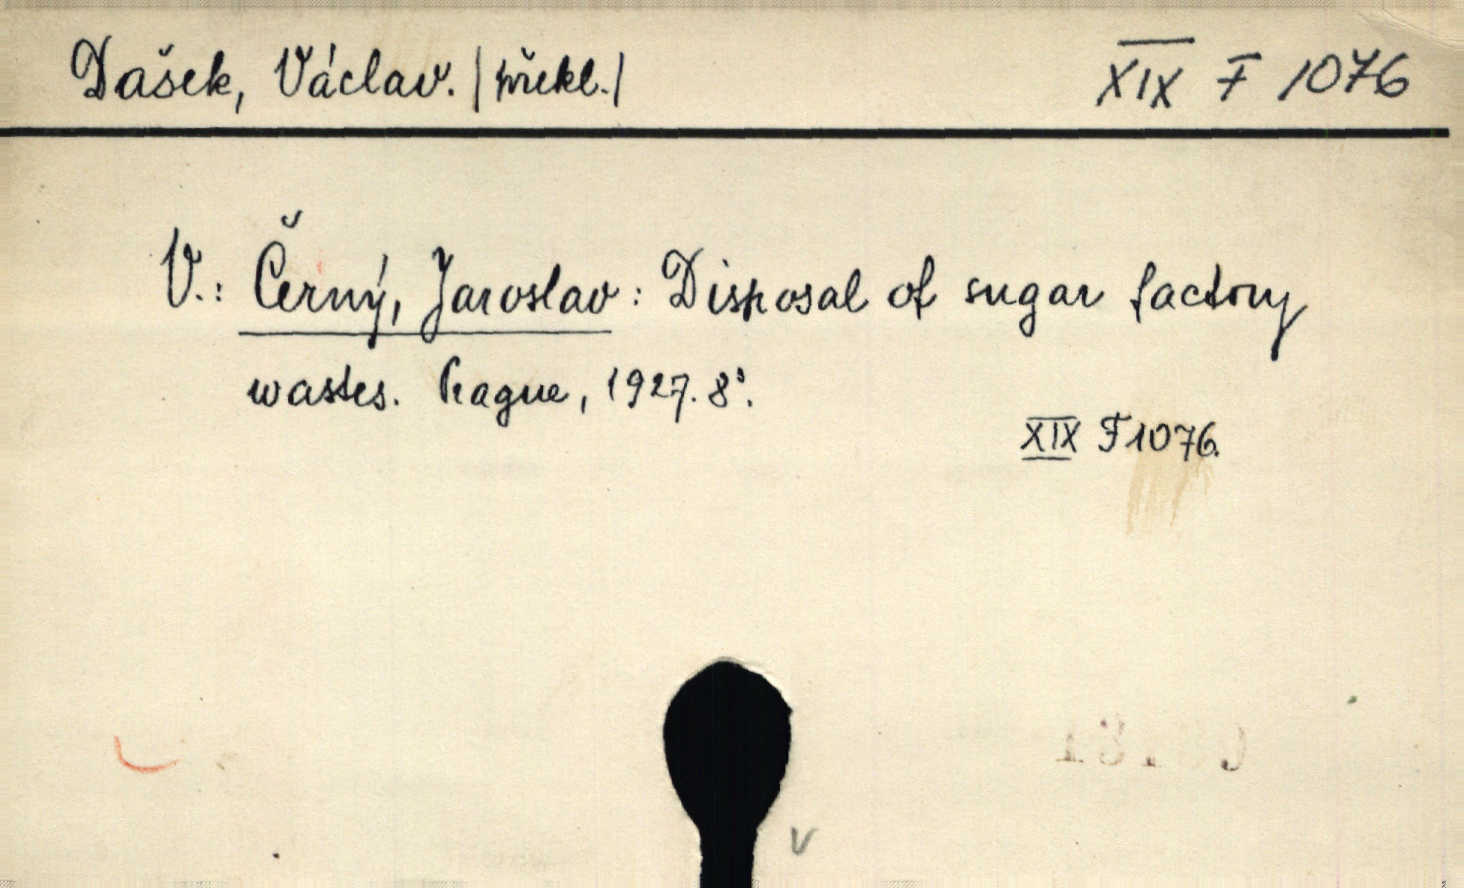 Dašek, Václav. /překl./ XIX F 1076
V.: Černý, Jaroslav: Disposal of sugar factory
wastes. Prague, 1927. 8°.
XIX F 1076.
v